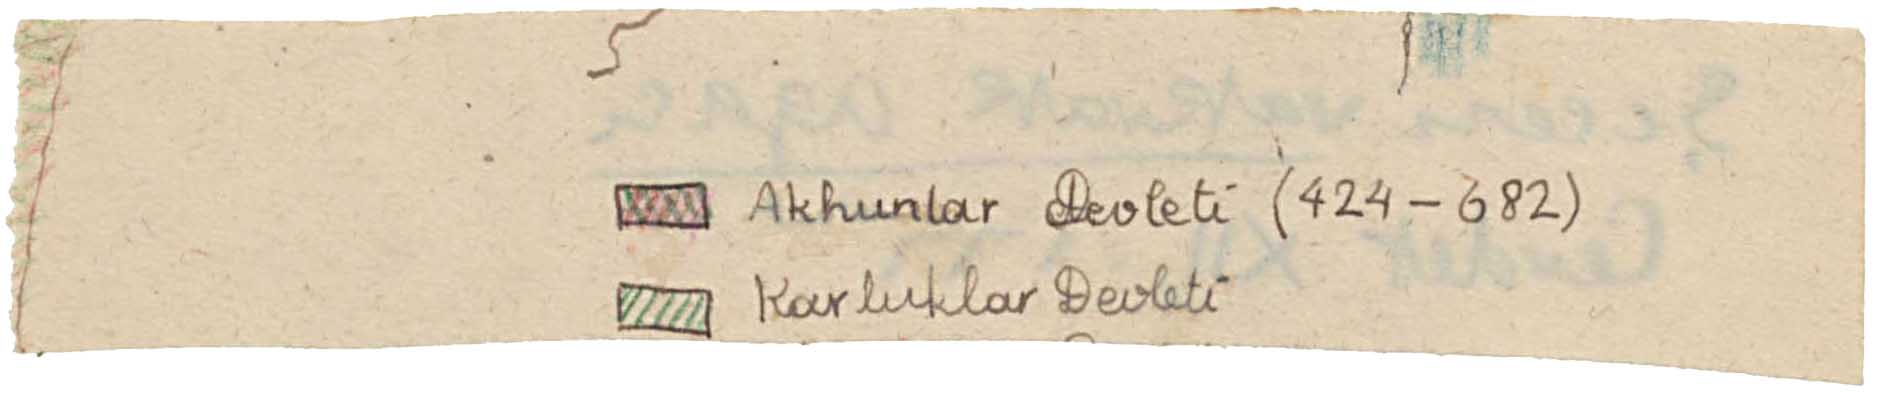 Akhunlar Devleti (424-682)
Karluklar Devleti